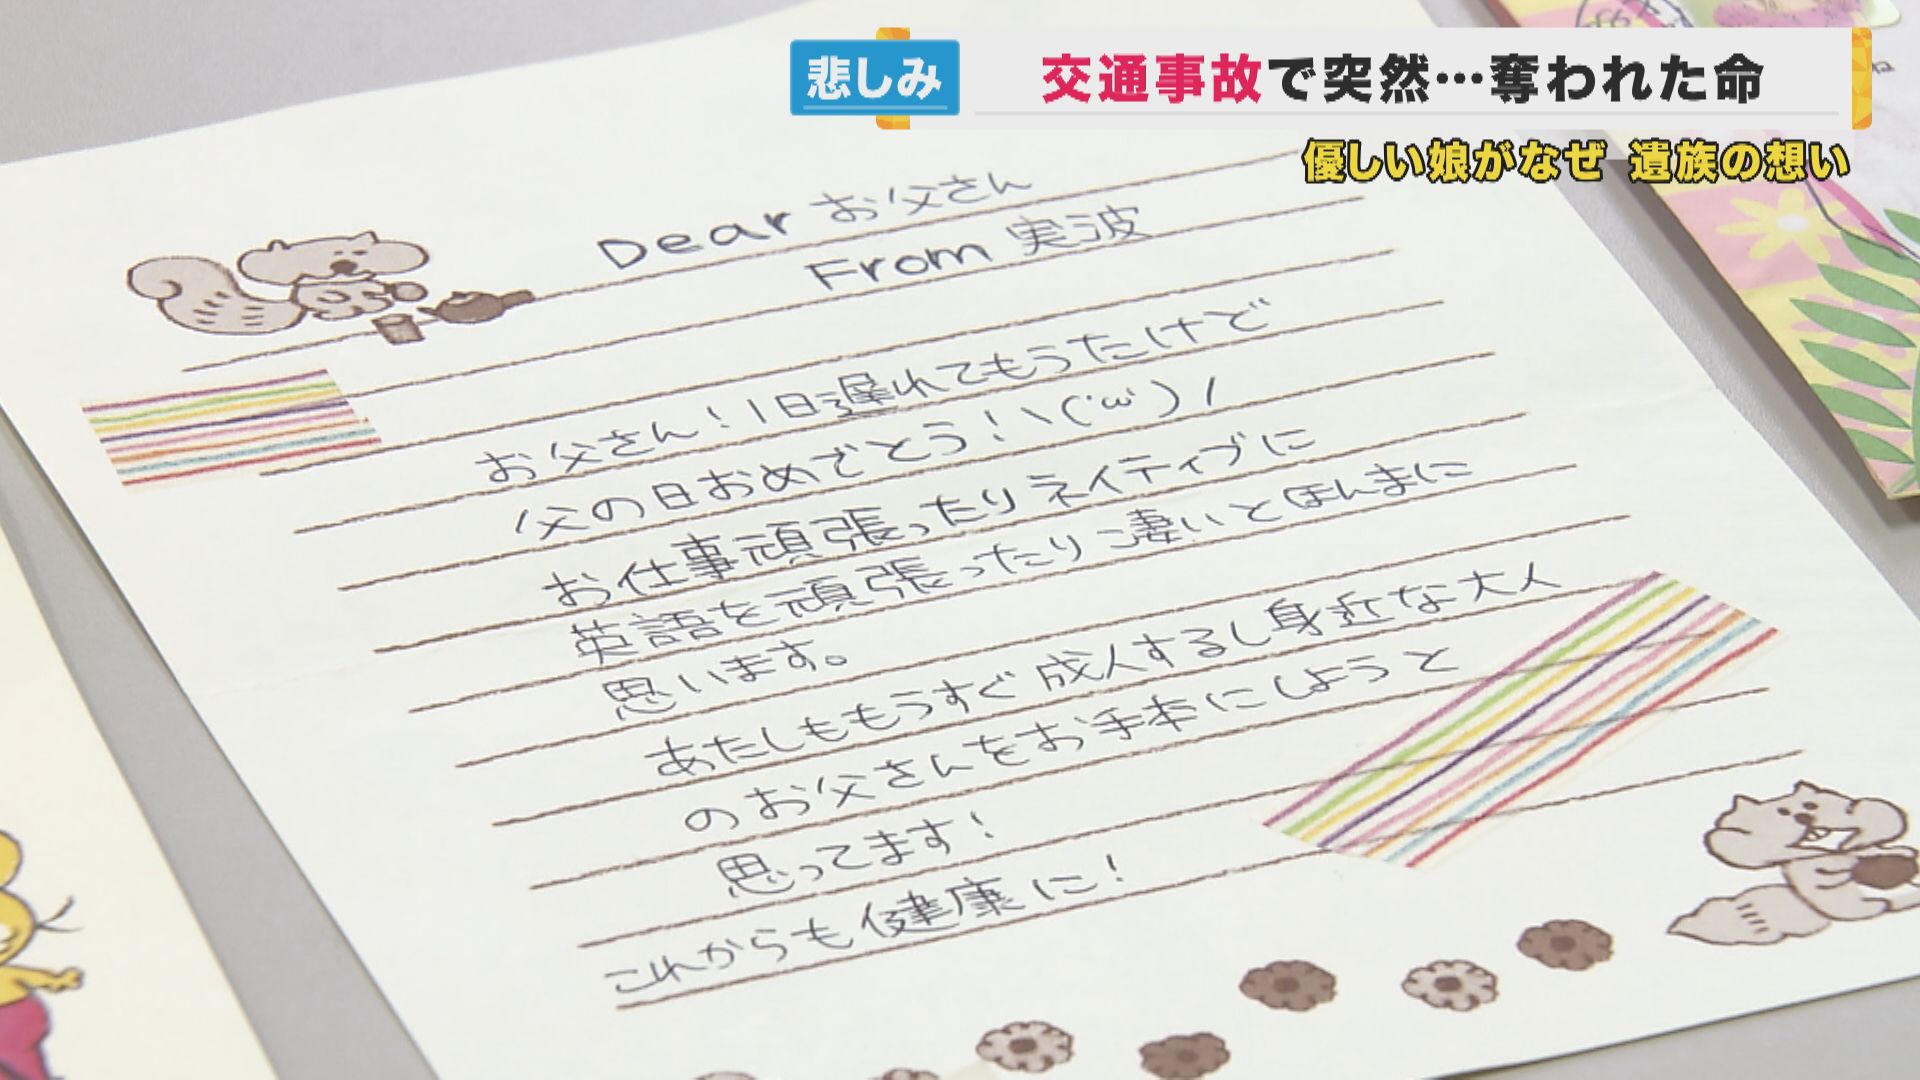 悲しみ
交通事故で突然…奪われた命
優しい娘がなぜ 遺族の想い
Dear お父さん
From 実波
お父さん！1日遅れてもうたけど
父の日おめでとう！ヽ(·ω·)ノ
お仕事頑張ったりネイティブに
英語を頑張ったり凄いとほんまに
思います。
あたしももうすぐ成人するし身近な大人
のお父さんをお手本にしようと
思ってます！
これからも健康に！